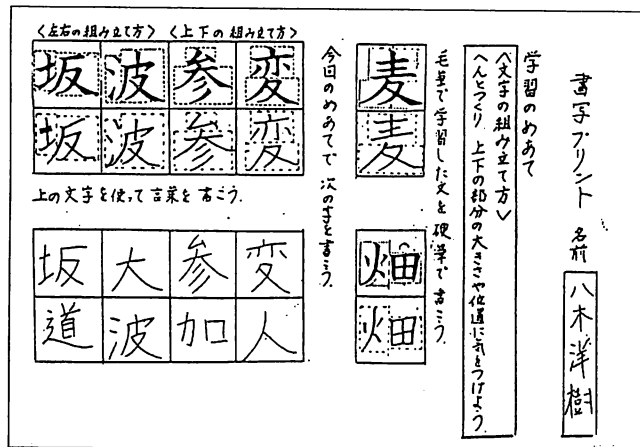 書写プリント 名前 八木洋樹
学習のめあて
〈文字の組み立て方〉
へんとつくり、上下の部分の大きさや位置に気をつけよう。
毛筆で学習した文を硬筆で書こう。
麦
麦
畑
畑
今回のめあてで次の字を書こう。
〈左右の組み立て方〉 〈上下の組み立て方〉
坂 波 参 変
坂 波 参 変
上の文字を使って言葉を書こう。
坂 大 参 変
道 波 加 人